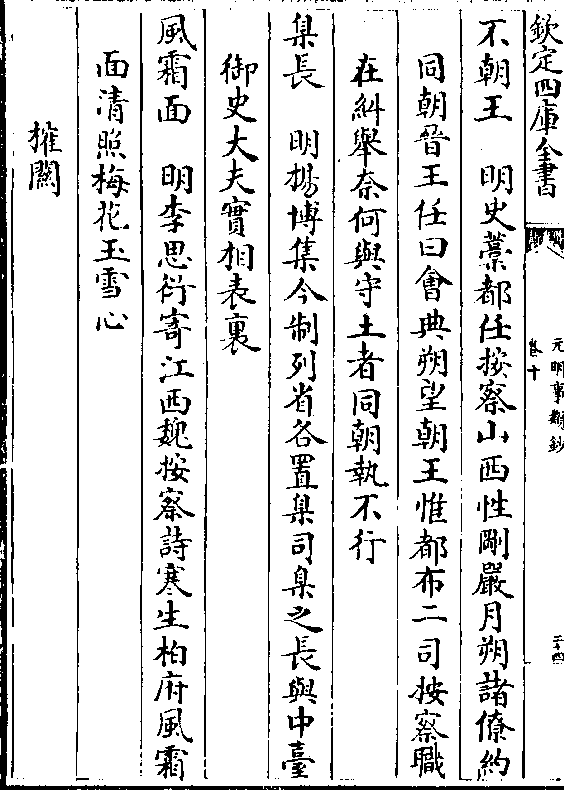 欽定四庫全書
元明事類鈔
卷十
二十四
不朝王　明史藁都任按察山西性剛嚴月朔諸僚約
同朝晉王任曰會典朔望朝王惟都布二司按察職
在糾舉奈何與守土者同朝執不行
臬長　明楊博集今制列省各置臬司臬之長與中臺
御史大夫實相表裏
風霜面　明李思衍寄江西魏按察詩寒生柏府風霜
面清照梅花玉雪心
搉關